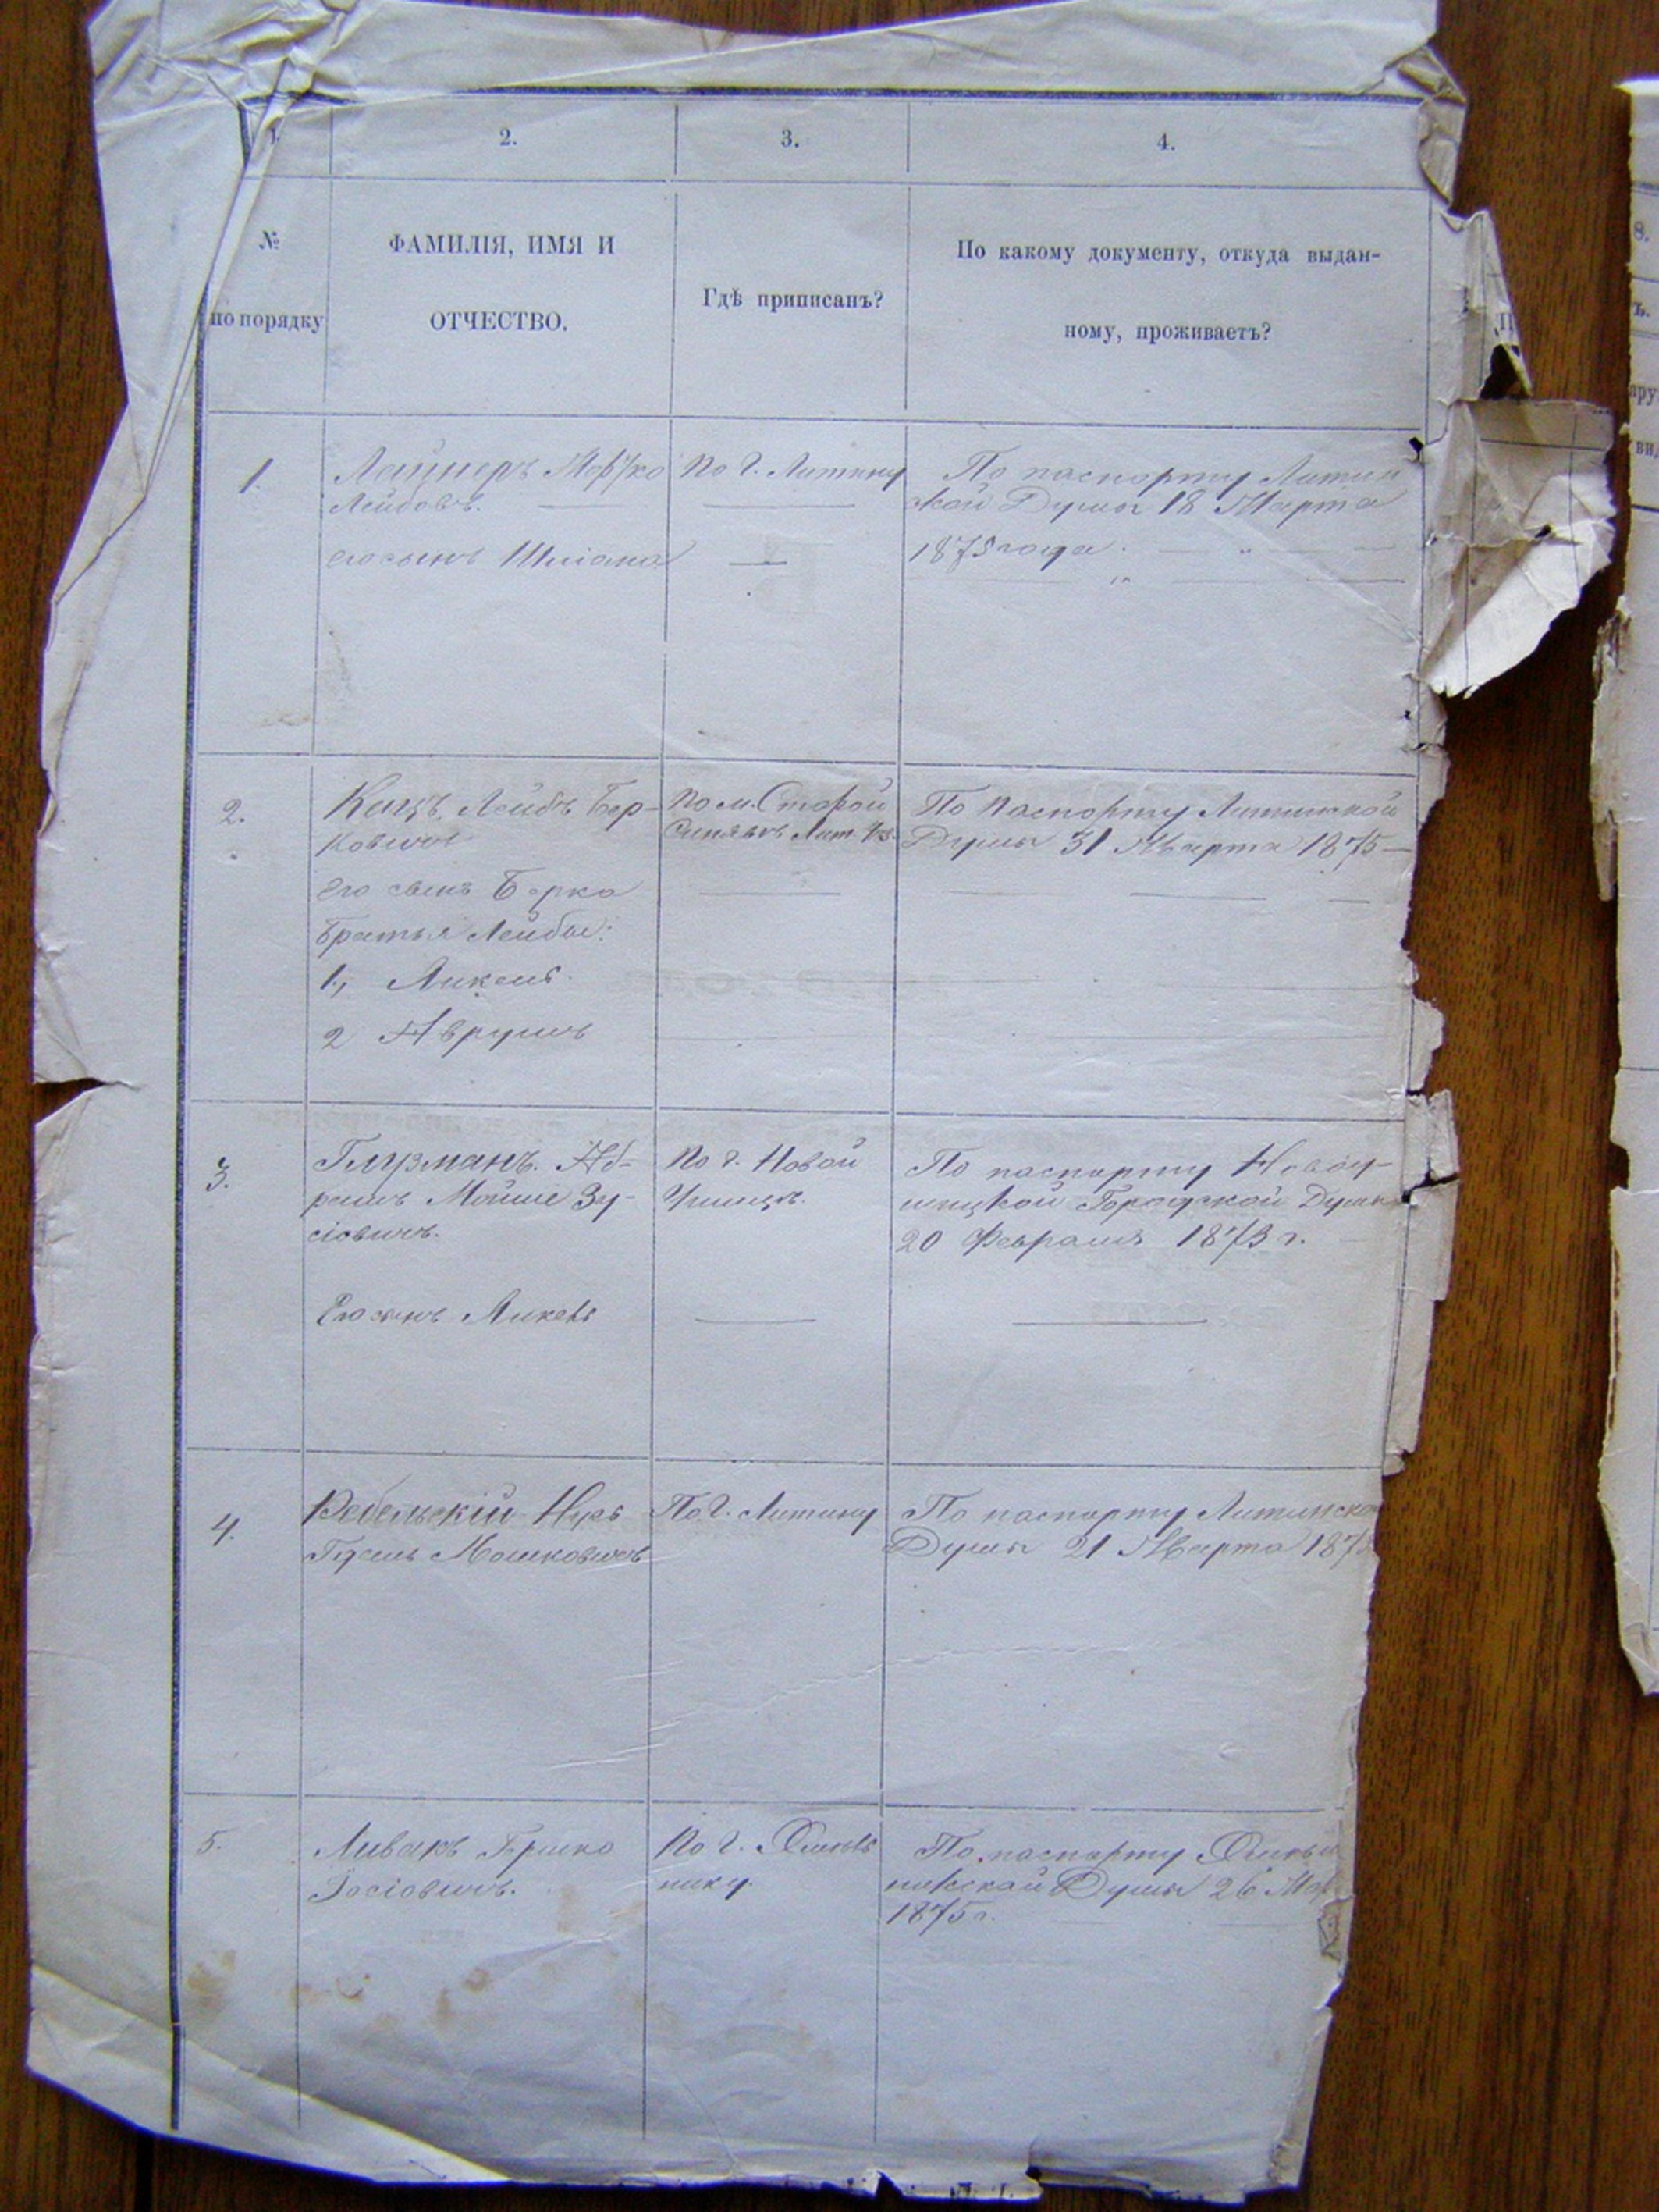 1. 2. 3. 4.
№ по порядку
ФАМИЛІЯ, ИМЯ И
ОТЧЕСТВО.
Гдѣ приписанъ?
По какому документу, откуда выдан-
ному, проживаетъ?
1.
Лейбовъ.
его сынъ
По г. Литину
По паспорту Литин
ской Думы 18 Марта
1875 года
2.
Кацъ Лейбъ Бер-
ковичъ
Его сынъ Берко
братья Лейбы:
1, Анкель
2 Аврумъ
По м. Старой
Синявѣ Лит. Уз.
По паспорту Литинской
Думы 31 Марта 1875
3.
Глузманъ Аб-
рамъ Мойше Зу-
сіовичъ.
Его сынъ
По г. Новой
Ушицѣ.
По паспорту Новоу-
шицкой Городской Думы
20 Февраля 1873 г.
4.
Мошковичъ
По г. Литину
По паспорту Литинско
Думы 21 Марта 187
5.
Ливакъ
Іосіовичъ.
По г. Хмѣль
нику.
По паспорту Хмѣль
никской Думы 26 Ма
1875 г.
8.